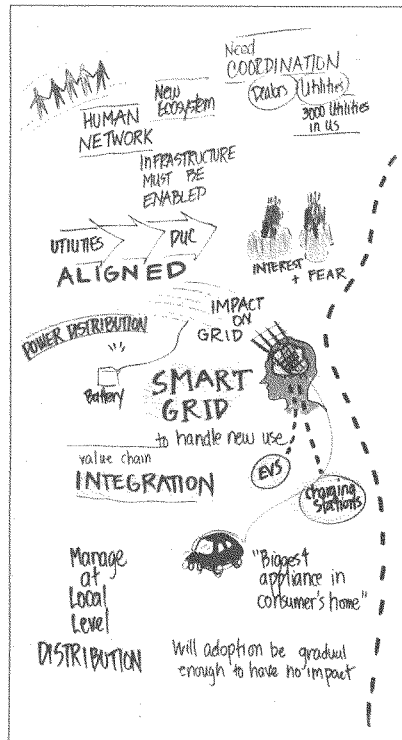 Need
COORDINATION
Dealers Utilities
3000 Utilities
in US
New
Ecosystem
HUMAN
NETWORK
INFRASTRUCTURE
MUST BE
ENABLED
UTILITIES
PUC
ALIGNED
INTEREST
+ FEAR
POWER DISTRIBUTION
IMPACT
ON
GRID
Battery
SMART
GRID
to handle new use
EVS
Charging
Stations
value chain
INTEGRATION
Manage
at
Local
Level
DISTRIBUTION
"Biggest
appliance in
consumer's home"
Will adoption be gradual
enough to have no impact